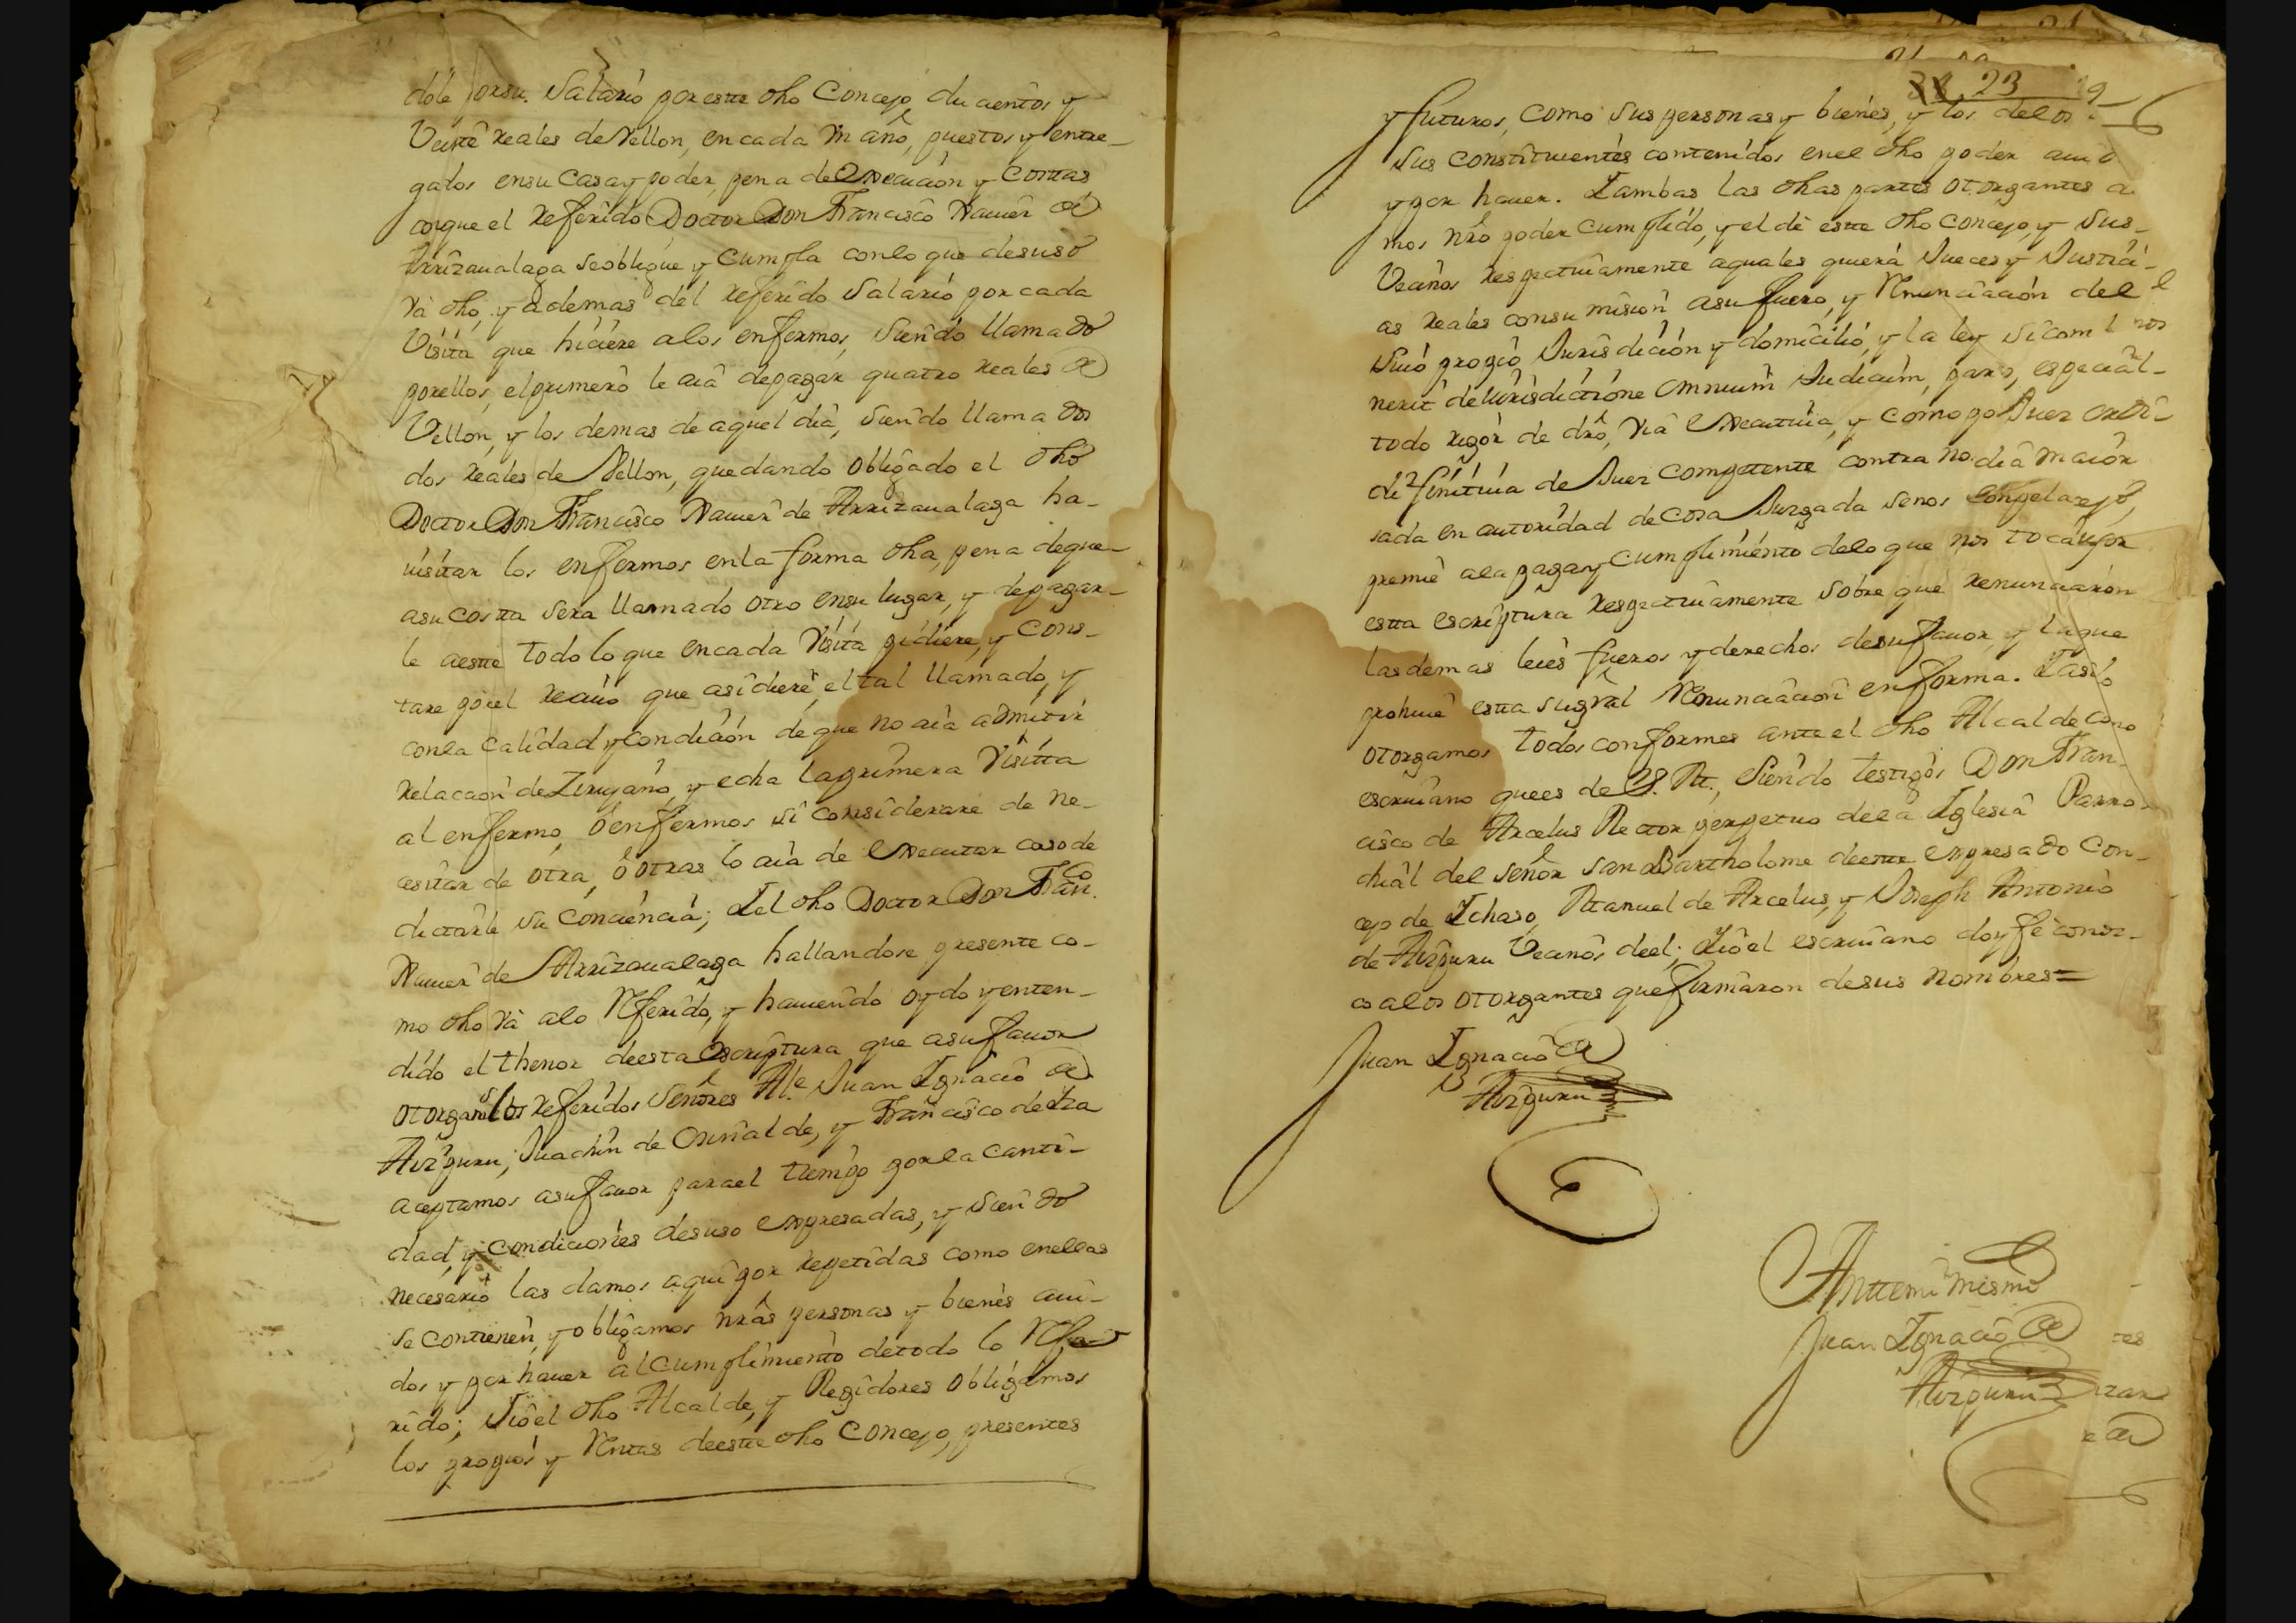 dole por su Salario por este dho Concejo ducientos y
Veinte reales de Vellon, en cada un año, puestos y entre-
gados en su casa y poder, pena de Execucion y costas
con que el referido Doctor Don Francisco Xauier de
Arrizaualaga se obligue y cumpla con lo que de suso
va dho, y ademas del referido Salario por cada
Visita que hiciere a los enfermos, siendo llamado
por ellos, el primero le aia de pagar quatro reales de
Vellon, y los demas de aquel dia, siendo llamado
dos reales de Vellon, quedando obligado el dho
Doctor Don Francisco Xauier de Arrizaualaga ha-
uisitar los enfermos en la forma dha, pena de que
a su costa sera llamado otro en su lugar, y de pagar-
le aeste todo lo que en cada Visita pidiere, y cons-
tare por el reciuo que asi diere el tal llamado, y
con la calidad y condicion de que no aia admitir
relacion de Zirujano, y echa la primera Visitta
al enfermo, ó enfermos si considerare de ne-
cesitar de otra, ó otras lo aia de Executar caso de
dictarle su conciencia; I el dho Doctor Don Fran.co
Xauier de Arrizaualaga hallandose presente co-
mo dho va a lo Referido, y hauiendo oydo y enten-
dido el thenor de esta escriptura que a su fauor
otorgan los referidos Señores Al.e Juan Ignacio de
Aizguru, Juachin de Oruialde, y Francisco de Iza
aceptamos a su fauor para el tiempo por la canti-
dad, y condiciones de suso expresadas, y siendo
necesario las damos aqui por repetidas como en ellas
se contienen, y obligamos nrâs personas y bienes aui-
dos y por hauer al cumplimiento de todo lo Refe-
rido; Iio el dho Alcalde, y Regidores obligamos
los propios y Rentas de este dho Concejo, presentes
23
y futuros, como sus personas y bienes, y los de los
sus constituientes contenidos en el dho poder auido
y por hauer. I ambas las dhas partes otorgantes a
mos nrô poder cumplido, y el de este dho Concejo, y sus
Vecinos respectiuamente a quales quiera Jueces y Justici-
as reales con sumision a su fuero, y Renunciacion del
suio propio Jurisdicion y domicilio, y la ley si com
nerit de Iurisdictione omnium Judicum, para, especial-
todo rigor de drô, via Executiua, y como por Juez
difinitiua de Juez competente contra no dia maior
sada en autoridad de cosa Juzgada se nos
premie ala paga y cumplimiento delo que nos toca por
esta escriptura respectiuamente sobre que renunciaron
las demas leies fueros y derechos de su fauor, y la que
prohiue esta su grâl Renunciacion en forma. I asi lo
otorgamos todos conformes ante el dho Alcalde como
escriuano que es de S. M., siendo testigos Don Fran-
cisco de Arcelus Rector perpetuo de la Iglesia Parro-
chial del señor San Bartholome de este expresado Con-
cejo de Ichaso, Manuel de Arcelus, y Joseph Antonio
de Aizguru Vecinos de el; Iio el escriuano doy fe conoz-
co alos otorgantes que firmaron de sus nombres=
Juan Ignacio de
Aizguru
Antte mi mismo
Juan Ignacio de
Aizguru